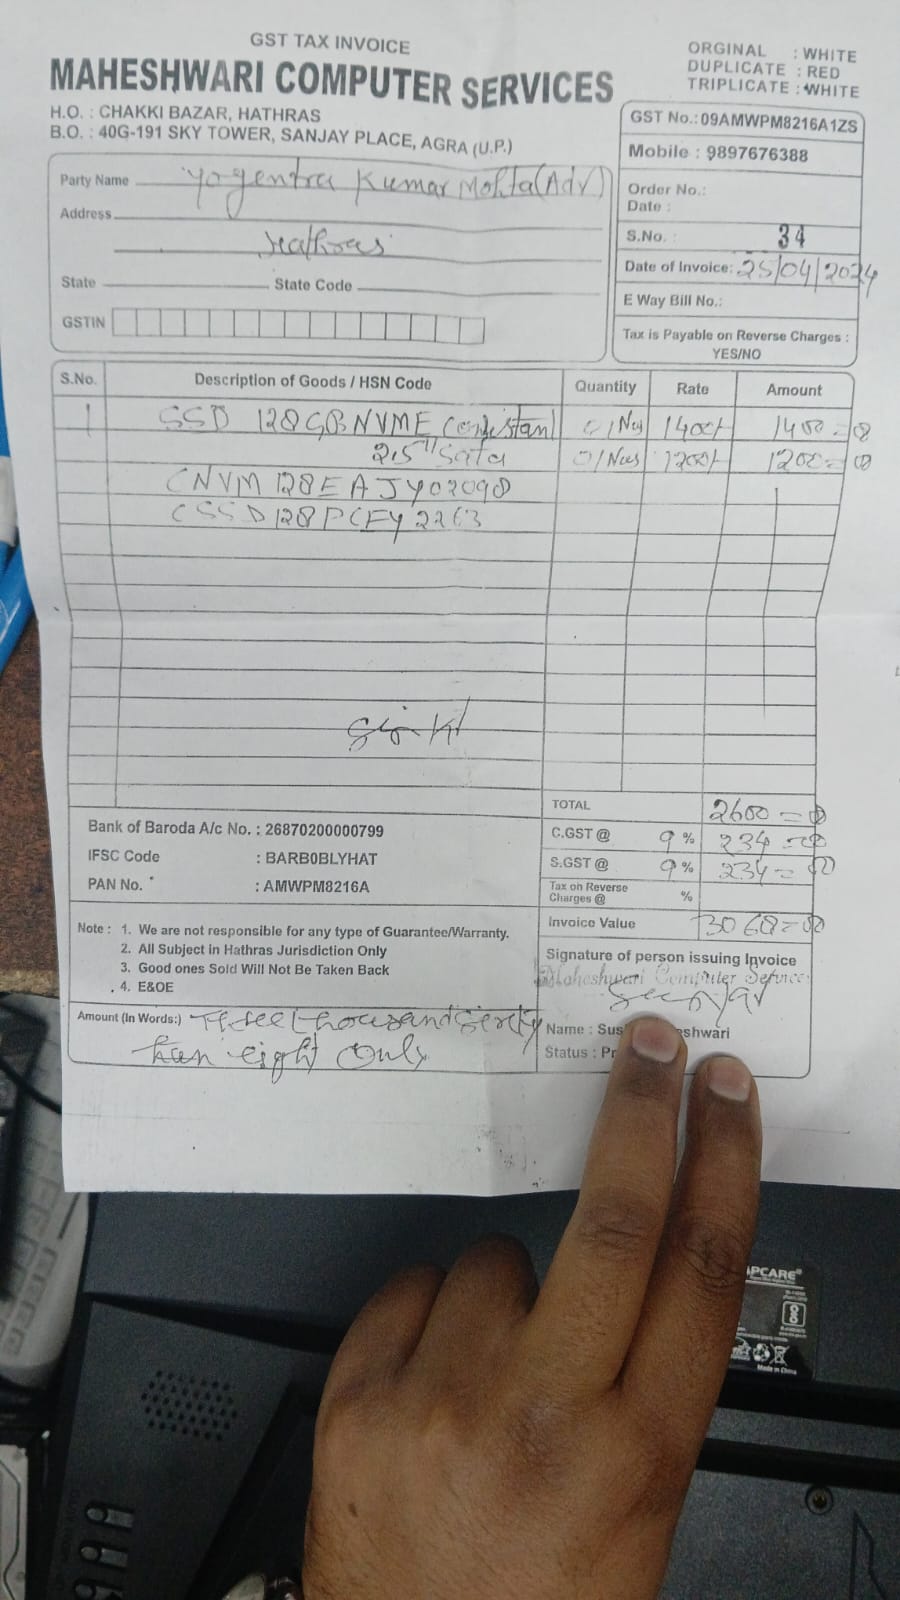 GST TAX INVOICE
ORGINAL : WHITE
DUPLICATE : RED
TRIPLICATE : WHITE
MAHESHWARI COMPUTER SERVICES
H.O. : CHAKKI BAZAR, HATHRAS
B.O. : 40G-191 SKY TOWER, SANJAY PLACE, AGRA (U.P.)
GST No.:09AMWPM8216A1ZS
Mobile : 9897676388
Party Name Yogentra Kumar Mohta(Adv)
Address
Hathras
State State Code
GSTIN
Order No.:
Date :
S.No. : 34
Date of Invoice: 25/04/2024
E Way Bill No.:
Tax is Payable on Reverse Charges :
YES/NO
S.No. Description of Goods / HSN Code Quantity Rate Amount
1 SSD 128GB NVME 01Nos 1400/- 1400=00
2.5" Sata 01Nos 1200/- 1200=00
CNVM128EAJY02098
CSSD128PCFY2263
TOTAL 2600=00
C.GST @ 9 % 234=00
S.GST @ 9 % 234=00
Tax on Reverse
Charges @ %
Invoice Value 3068=00
Bank of Baroda A/c No. : 26870200000799
IFSC Code : BARB0BLYHAT
PAN No. : AMWPM8216A
Note : 1. We are not responsible for any type of Guarantee/Warranty.
2. All Subject in Hathras Jurisdiction Only
3. Good ones Sold Will Not Be Taken Back
4. E&OE
Signature of person issuing Invoice
Maheshwari Computer Service
Name : Sus eshwari
Status : Pr
Amount (In Words:) Three thousand Sixty
eight Only
APCARE®
Made in China